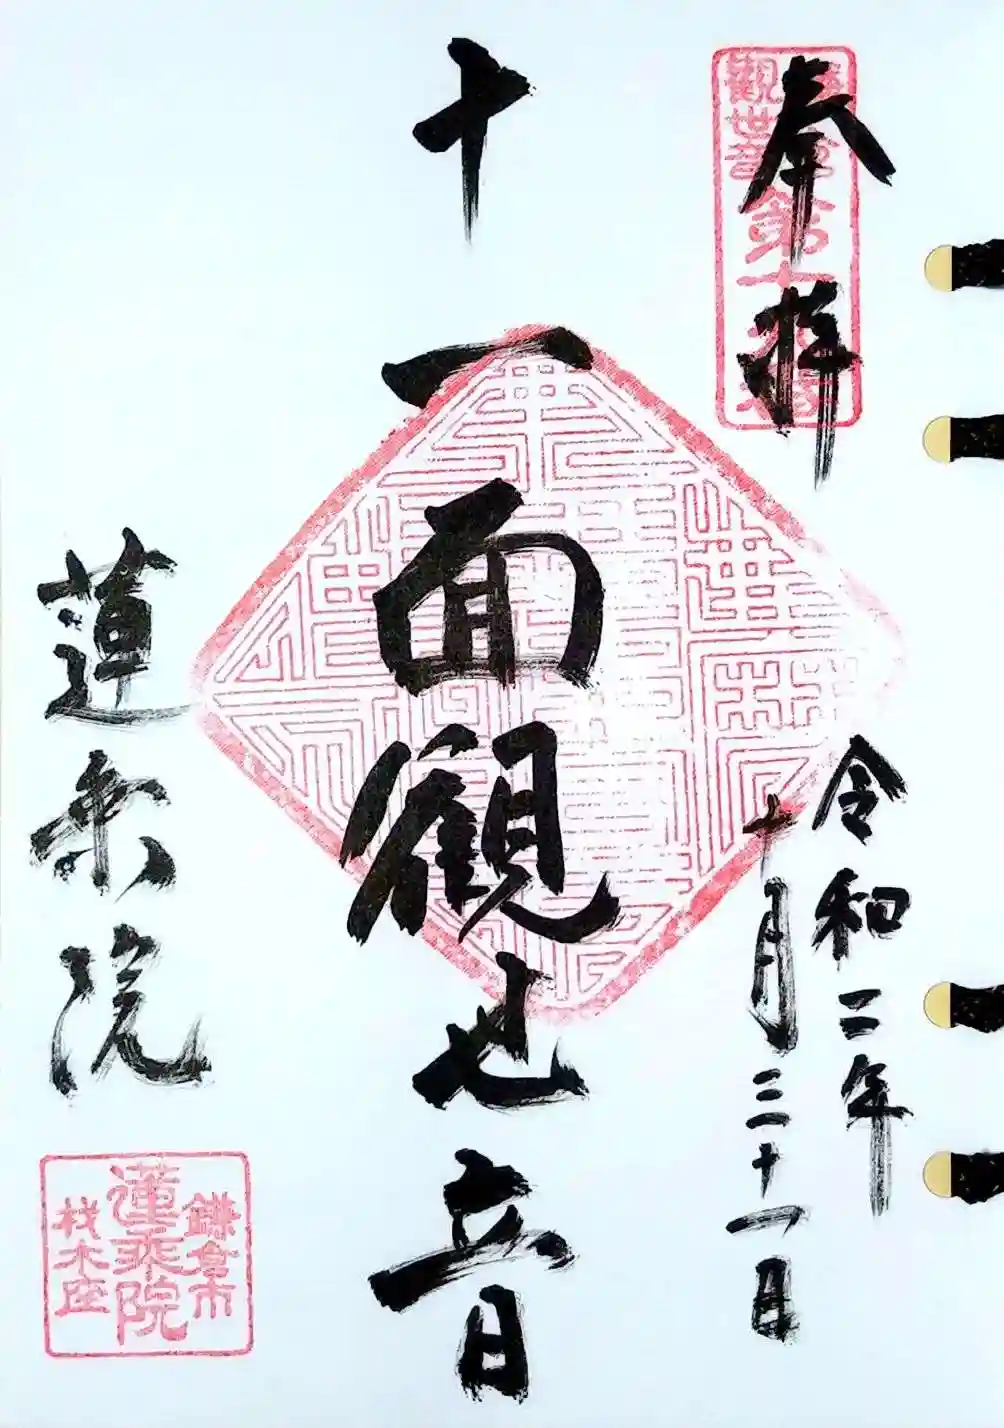 奉拝
觀世音
第十
令和二年
十月三十一日
十一面觀世音
蓮乗院
鎌倉市
蓮乗院
材木座